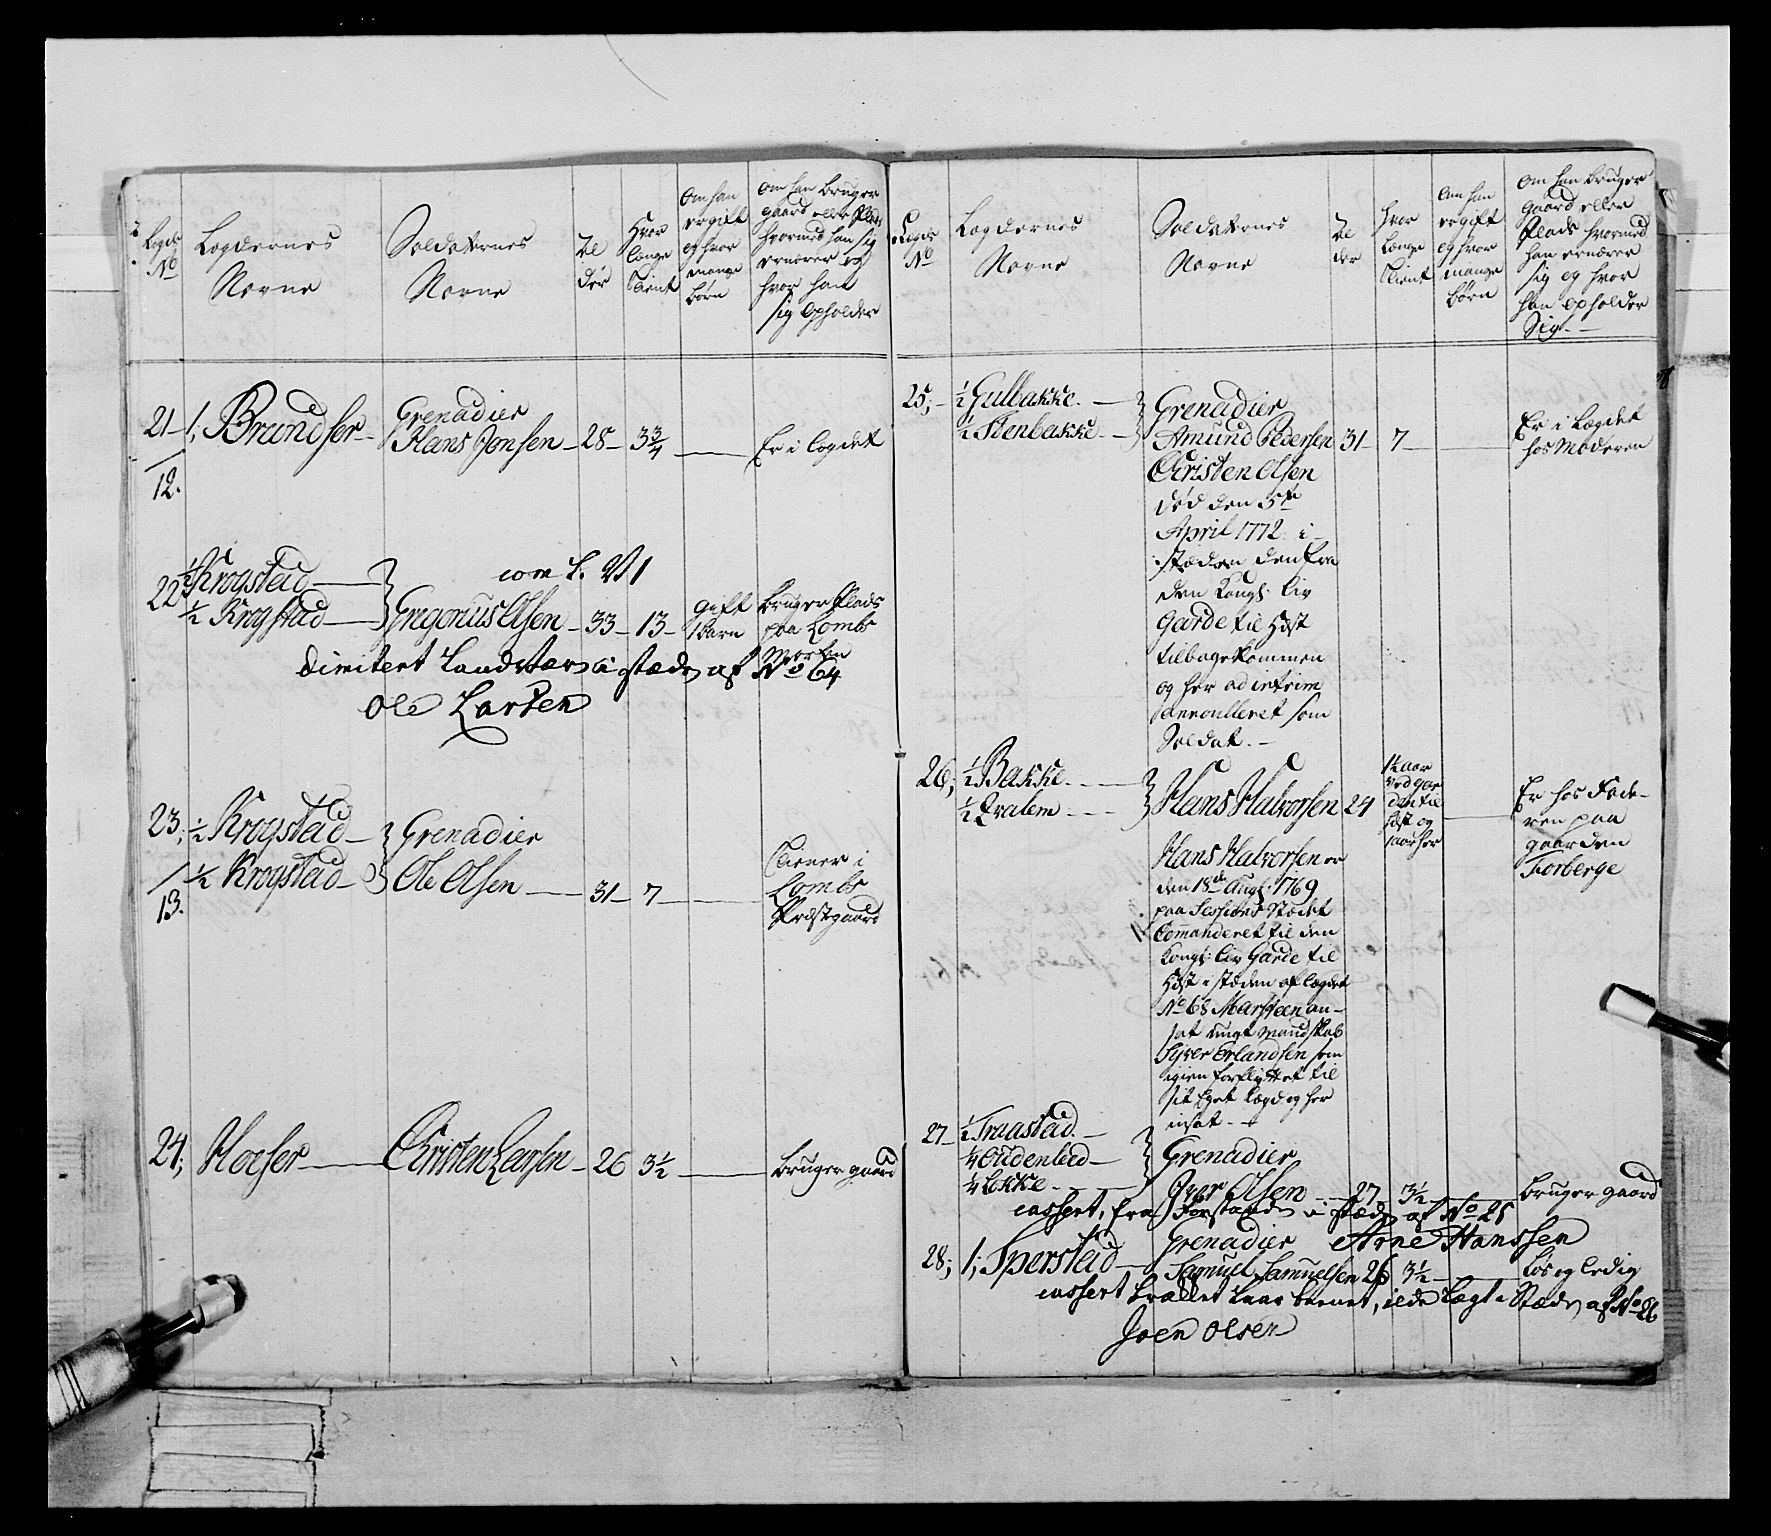 Legds No
Legdernes
Navne
Soldaternes
Navne
Al
der
Hvor
længe
tient
Om han
er gift
og hvor
mange
børn
Om han bruger
gaard eller Plads
hvormed han sig
ernærer og
hvor han
sig opholder
21 1; Brandser
Grenadier
Hans Jonsen 28 3 3/4 Er i legdet
12.
com l. No 1
22 1/2 Krogstad
1/2 Krogstad Gregorius Olsen 33 13 Gift 1 barn
bruger Plads
paa Lombs
dimitert Landværn i stæden af No 64
Ole Larsen
23; 1/2 Krogstad Grenadier
1/2 Krogstad Ole Olsen 31 7
13.
Tiener i
Lombs
Præstgaard
24; Hoeser Christen Larsen 26 3 1/2 bruger gaard
Legds
No
Legdernes
Navne
Soldaternes
Navne
Al
der
Hvor
længe
tient
Om han
er gift
og hvor
mange
børn
Om han bruger
gaard eller
Plads hvormed
han ernærer
sig og hvor
han opholder
Sig
25; 1/2 Gulbakke
1/2 Stenbakke
Grenadier
Amund Pedersen 31 7
Er i Legdet
hos Moderen
Christen Olsen
død den 5te
April 1772 i
stæden den fra
den Kongl. Liv
Garde til Hæst
tilbagekommen
og her ad interim
Enroulleret som
Soldat.
26; 1/2 Bakke
1/2 Qvalem
Hans Halvorsen 24
1 1/2 aar
ved Gar
den til
Hæst og
1 aar her
Er hos Fade-
ren paa
gaarden
Forberge
Hans Halvorsen er
den 18de Augs. 1769
paa Sessions Stædet
Commanderet til den
Kongl. Liv Garde til
Hæst i stæden af legdet
No 68 Marsteen an-
sat ungt Mandskab
Syver Erlandsen som
igien forflyttet til
sit Eget Legd og her
insat.
27 1/2 Traastad
1/4 Oudenlied
1/4 Løkke
Grenadier
Iver Olsen 27 3 1/2 bruger gaard
cassert, fra Forstand i stæden af No 25
Arne Hanssen
28; 1; Sperstad
Grenadier
Samuel Samuelsen 26 3 1/2 Løs og ledig
cassert brællet Laar beenet, ilde Lægt i Stæden af No 26
Joen Olsen